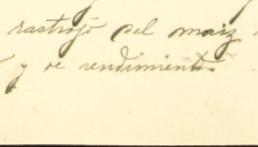 rastrojo del maiz
y de rendimiento.